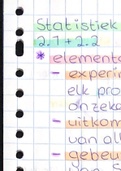 Statistiek
2.1 + 2.2
* elementa
- experi
elk pro
onzeke
- uitkom
van al
- gebeu